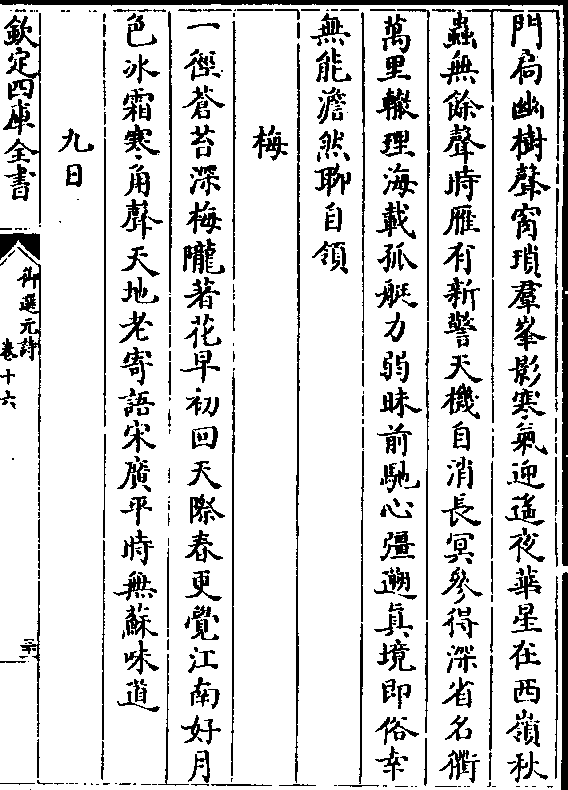 門扄幽樹聲窗瑣羣峯影寒氣迎遥夜華星在西嶺秋
蟲無餘聲時雁有新警天機自消長冥參得深省名衢
萬里轍理海載孤艇力弱昧前馳心彊遡真境即俗幸
無能澹然聊自領
梅
一徑蒼苔深梅隴著花早初回天際春更覺江南好月
色冰霜寒角聲天地老寄語宋廣平時無蘇味道
九日
欽定四庫全書
御選元詩
卷十六